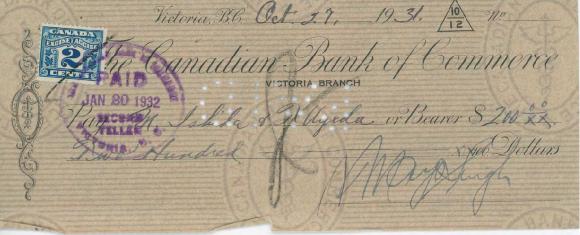 Victoria, B.C. Oct. 27, 1931. 10/12 No
CANADA
EXCISE ACCISE
2
CENTS
The Canadian Bank of Commerce
VICTORIA BRANCH
PAID
JAN 20 1932
SECOND
TELLER
VICTORIA, B.C.
Pay M. Ishida & Uyeda or Bearer $ 200 00/xx
Two Hundred xx/100 Dollars